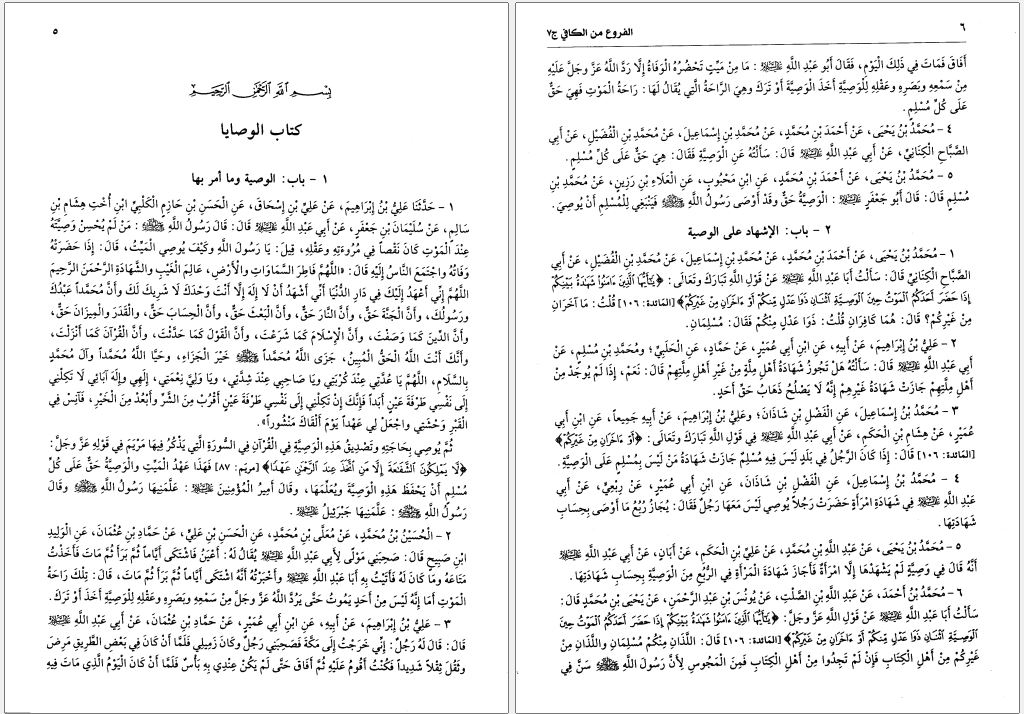 ٥
بِسْمِ اللهِ الرَّحْمَنِ الرَّحِيمِ
كتاب الوصايا
١ - باب: الوصية وما أمر بها
١ - حَدَّثَنَا عَلِيُّ بْنُ إِبْرَاهِيمَ، عَنْ عَلِيِّ بْنِ إِسْحَاقَ، عَنِ الْحَسَنِ بْنِ حَازِمٍ الْكَلْبِيِّ ابْنِ أُخْتِ هِشَامِ بْنِ
سَالِمٍ، عَنْ سُلَيْمَانَ بْنِ جَعْفَرٍ، عَنْ أَبِي عَبْدِ اللَّهِ عليه السلام قَالَ: قَالَ رَسُولُ اللَّهِ ﷺ : مَنْ لَمْ يُحْسِنْ وَصِيَّتَهُ
عِنْدَ الْمَوْتِ كَانَ نَقْصاً فِي مُرُوءَتِهِ وعَقْلِهِ، قِيلَ: يَا رَسُولَ اللَّهِ وكَيْفَ يُوصِي الْمَيِّتُ، قَالَ: إِذَا حَضَرَتْهُ
وَفَاتُهُ واجْتَمَعَ النَّاسُ إِلَيْهِ قَالَ: «اللَّهُمَّ فَاطِرَ السَّمَاوَاتِ والْأَرْضِ، عَالِمَ الْغَيْبِ والشَّهَادَةِ الرَّحْمَنَ الرَّحِيمَ
اللَّهُمَّ إِنِّي أَعْهَدُ إِلَيْكَ فِي دَارِ الدُّنْيَا أَنِّي أَشْهَدُ أَنْ لَا إِلَهَ إِلَّا أَنْتَ وَحْدَكَ لَا شَرِيكَ لَكَ وأَنَّ مُحَمَّداً عَبْدُكَ
ورَسُولُكَ، وأَنَّ الْجَنَّةَ حَقٌّ، وأَنَّ النَّارَ حَقٌّ، وأَنَّ الْبَعْثَ حَقٌّ، وأَنَّ الْحِسَابَ حَقٌّ، والْقَدَرَ والْمِيزَانَ حَقٌّ،
وأَنَّ الدِّينَ كَمَا وَصَفْتَ، وأَنَّ الْإِسْلَامَ كَمَا شَرَعْتَ، وأَنَّ الْقَوْلَ كَمَا حَدَّثْتَ، وأَنَّ الْقُرْآنَ كَمَا أَنْزَلْتَ،
وأَنَّكَ أَنْتَ اللَّهُ الْحَقُّ الْمُبِينُ، جَزَى اللَّهُ مُحَمَّداً ﷺ خَيْرَ الْجَزَاءِ، وحَيَّا اللَّهُ مُحَمَّداً وآلَ مُحَمَّدٍ
بِالسَّلَامِ، اللَّهُمَّ يَا عُدَّتِي عِنْدَ كُرْبَتِي ويَا صَاحِبِي عِنْدَ شِدَّتِي، ويَا وَلِيَّ نِعْمَتِي، إِلَهِي وإِلَهَ آبَائِي لَا تَكِلْنِي
إِلَى نَفْسِي طَرْفَةَ عَيْنٍ أَبَداً فَإِنَّكَ إِنْ تَكِلْنِي إِلَى نَفْسِي طَرْفَةَ عَيْنٍ أَقْرُبْ مِنَ الشَّرِّ وأَبْعُدْ مِنَ الْخَيْرِ، فَآنِسْ فِي
الْقَبْرِ وَحْشَتِي واجْعَلْ لِي عَهْداً يَوْمَ أَلْقَاكَ مَنْشُوراً».
ثُمَّ يُوصِي بِحَاجَتِهِ وتَصْدِيقُ هَذِهِ الْوَصِيَّةِ فِي الْقُرْآنِ فِي السُّورَةِ الَّتِي يَذْكُرُ فِيهَا مَرْيَمَ فِي قَوْلِهِ عَزَّ وجَلَّ:
﴿لَا يَمْلِكُونَ الشَّفَاعَةَ إِلَّا مَنِ اتَّخَذَ عِندَ الرَّحْمَنِ عَهْدًا﴾ [مريم: ٨٧] فَهَذَا عَهْدُ الْمَيِّتِ والْوَصِيَّةُ حَقٌّ عَلَى كُلِّ
مُسْلِمٍ أَنْ يَحْفَظَ هَذِهِ الْوَصِيَّةَ ويُعَلِّمَهَا، وقَالَ أَمِيرُ الْمُؤْمِنِينَ عليه السلام : عَلَّمَنِيهَا رَسُولُ اللَّهِ ﷺ وقَالَ
رَسُولُ اللَّهِ ﷺ : عَلَّمَنِيهَا جَبْرَئِيلُ عليه السلام .
٢ - الْحُسَيْنُ بْنُ مُحَمَّدٍ، عَنْ مُعَلَّى بْنِ مُحَمَّدٍ، عَنِ الْحَسَنِ بْنِ عَلِيٍّ، عَنْ حَمَّادِ بْنِ عُثْمَانَ، عَنِ الْوَلِيدِ
ابْنِ صَبِيحٍ قَالَ: صَحِبَنِي مَوْلًى لِأَبِي عَبْدِ اللَّهِ عليه السلام يُقَالُ لَهُ: أَعْيَنُ فَاشْتَكَى أَيَّاماً ثُمَّ بَرَأَ ثُمَّ مَاتَ فَأَخَذْتُ
مَتَاعَهُ ومَا كَانَ لَهُ فَأَتَيْتُ بِهِ أَبَا عَبْدِ اللَّهِ عليه السلام وأَخْبَرْتُهُ أَنَّهُ اشْتَكَى أَيَّاماً ثُمَّ بَرَأَ ثُمَّ مَاتَ، قَالَ: تِلْكَ رَاحَةُ
الْمَوْتِ أَمَا إِنَّهُ لَيْسَ مِنْ أَحَدٍ يَمُوتُ حَتَّى يَرُدَّ اللَّهُ عَزَّ وجَلَّ مِنْ سَمْعِهِ وبَصَرِهِ وعَقْلِهِ لِلْوَصِيَّةِ أَخَذَ أَوْ تَرَكَ.
٣ - عَلِيُّ بْنُ إِبْرَاهِيمَ، عَنْ أَبِيهِ، عَنِ ابْنِ أَبِي عُمَيْرٍ، عَنْ حَمَّادِ بْنِ عُثْمَانَ، عَنْ أَبِي عَبْدِ اللَّهِ عليه السلام
قَالَ: قَالَ لَهُ رَجُلٌ: إِنِّي خَرَجْتُ إِلَى مَكَّةَ فَصَحِبَنِي رَجُلٌ وكَانَ زَمِيلِي فَلَمَّا أَنْ كَانَ فِي بَعْضِ الطَّرِيقِ مَرِضَ
وثَقُلَ ثِقْلًا شَدِيداً فَكُنْتُ أَقُومُ عَلَيْهِ ثُمَّ أَفَاقَ حَتَّى لَمْ يَكُنْ عِنْدِي بِهِ بَأْسٌ فَلَمَّا أَنْ كَانَ الْيَوْمُ الَّذِي مَاتَ فِيهِ
٦
الفروع من الكافي ج٧
أَفَاقَ فَمَاتَ فِي ذَلِكَ الْيَوْمِ، فَقَالَ أَبُو عَبْدِ اللَّهِ عليه السلام : مَا مِنْ مَيِّتٍ تَحْضُرُهُ الْوَفَاةُ إِلَّا رَدَّ اللَّهُ عَزَّ وجَلَّ عَلَيْهِ
مِنْ سَمْعِهِ وبَصَرِهِ وعَقْلِهِ لِلْوَصِيَّةِ أَخَذَ الْوَصِيَّةَ أَوْ تَرَكَ وهِيَ الرَّاحَةُ الَّتِي يُقَالُ لَهَا: رَاحَةُ الْمَوْتِ فَهِيَ حَقٌّ
عَلَى كُلِّ مُسْلِمٍ.
٤ - مُحَمَّدُ بْنُ يَحْيَى، عَنْ أَحْمَدَ بْنِ مُحَمَّدٍ، عَنْ مُحَمَّدِ بْنِ إِسْمَاعِيلَ، عَنْ مُحَمَّدِ بْنِ الْفُضَيْلِ، عَنْ أَبِي
الصَّبَّاحِ الْكِنَانِيِّ، عَنْ أَبِي عَبْدِ اللَّهِ عليه السلام قَالَ: سَأَلْتُهُ عَنِ الْوَصِيَّةِ فَقَالَ: هِيَ حَقٌّ عَلَى كُلِّ مُسْلِمٍ.
٥ - مُحَمَّدُ بْنُ يَحْيَى، عَنْ أَحْمَدَ بْنِ مُحَمَّدٍ، عَنِ ابْنِ مَحْبُوبٍ، عَنِ الْعَلَاءِ بْنِ رَزِينٍ، عَنْ مُحَمَّدِ بْنِ
مُسْلِمٍ قَالَ: قَالَ أَبُو جَعْفَرٍ عليه السلام : الْوَصِيَّةُ حَقٌّ وقَدْ أَوْصَى رَسُولُ اللَّهِ ﷺ فَيَنْبَغِي لِلْمُسْلِمِ أَنْ يُوصِيَ.
٢ - باب: الإشهاد على الوصية
١ - مُحَمَّدُ بْنُ يَحْيَى، عَنْ أَحْمَدَ بْنِ مُحَمَّدٍ، عَنْ مُحَمَّدِ بْنِ إِسْمَاعِيلَ، عَنْ مُحَمَّدِ بْنِ الْفُضَيْلِ، عَنْ أَبِي
الصَّبَّاحِ الْكِنَانِيِّ قَالَ: سَأَلْتُ أَبَا عَبْدِ اللَّهِ عليه السلام عَنْ قَوْلِ اللَّهِ تَبَارَكَ وتَعَالَى: ﴿يَا أَيُّهَا الَّذِينَ ءَامَنُوا شَهَادَةُ بَيْنِكُمْ
إِذَا حَضَرَ أَحَدَكُمُ الْمَوْتُ حِينَ الْوَصِيَّةِ اثْنَانِ ذَوَا عَدْلٍ مِّنكُمْ أَوْ ءَاخَرَانِ مِنْ غَيْرِكُمْ﴾ [المائدة: ١٠٦] قُلْتُ: مَا آخَرَانِ
مِنْ غَيْرِكُمْ؟ قَالَ: هُمَا كَافِرَانِ قُلْتُ: ذَوَا عَدْلٍ مِنْكُمْ فَقَالَ: مُسْلِمَانِ.
٢ - عَلِيُّ بْنُ إِبْرَاهِيمَ، عَنْ أَبِيهِ، عَنِ ابْنِ أَبِي عُمَيْرٍ، عَنْ حَمَّادٍ، عَنِ الْحَلَبِيِّ؛ ومُحَمَّدِ بْنِ مُسْلِمٍ، عَنْ
أَبِي عَبْدِ اللَّهِ عليه السلام قَالَ: سَأَلْتُهُ هَلْ تَجُوزُ شَهَادَةُ أَهْلِ مِلَّةٍ مِنْ غَيْرِ أَهْلِ مِلَّتِهِمْ قَالَ: نَعَمْ، إِذَا لَمْ يُوجَدْ مِنْ
أَهْلِ مِلَّتِهِمْ جَازَتْ شَهَادَةُ غَيْرِهِمْ إِنَّهُ لَا يَصْلُحُ ذَهَابُ حَقِّ أَحَدٍ.
٣ - مُحَمَّدُ بْنُ إِسْمَاعِيلَ، عَنِ الْفَضْلِ بْنِ شَاذَانَ؛ وعَلِيُّ بْنُ إِبْرَاهِيمَ، عَنْ أَبِيهِ جَمِيعاً، عَنِ ابْنِ أَبِي
عُمَيْرٍ، عَنْ هِشَامِ بْنِ الْحَكَمِ، عَنْ أَبِي عَبْدِ اللَّهِ عليه السلام فِي قَوْلِ اللَّهِ تَبَارَكَ وتَعَالَى: ﴿أَوْ ءَاخَرَانِ مِنْ غَيْرِكُمْ﴾
[المائدة: ١٠٦] قَالَ: إِذَا كَانَ الرَّجُلُ فِي بَلَدٍ لَيْسَ فِيهِ مُسْلِمٌ جَازَتْ شَهَادَةُ مَنْ لَيْسَ بِمُسْلِمٍ عَلَى الْوَصِيَّةِ.
٤ - مُحَمَّدُ بْنُ إِسْمَاعِيلَ، عَنِ الْفَضْلِ بْنِ شَاذَانَ، عَنِ ابْنِ أَبِي عُمَيْرٍ، عَنْ رِبْعِيٍّ، عَنْ أَبِي
عَبْدِ اللَّهِ عليه السلام فِي شَهَادَةِ امْرَأَةٍ حَضَرَتْ رَجُلًا يُوصِي لَيْسَ مَعَهَا رَجُلٌ فَقَالَ: يُجَازُ رُبُعُ مَا أَوْصَى بِحِسَابِ
شَهَادَتِهَا.
٥ - مُحَمَّدُ بْنُ يَحْيَى، عَنْ عَبْدِ اللَّهِ بْنِ مُحَمَّدٍ، عَنْ عَلِيِّ بْنِ الْحَكَمِ، عَنْ أَبَانٍ، عَنْ أَبِي عَبْدِ اللَّهِ عليه السلام
أَنَّهُ قَالَ فِي وَصِيَّةٍ لَمْ يَشْهَدْهَا إِلَّا امْرَأَةٌ فَأَجَازَ شَهَادَةَ الْمَرْأَةِ فِي الرُّبُعِ مِنَ الْوَصِيَّةِ بِحِسَابِ شَهَادَتِهَا.
٦ - مُحَمَّدُ بْنُ أَحْمَدَ، عَنْ عَبْدِ اللَّهِ بْنِ الصَّلْتِ، عَنْ يُونُسَ بْنِ عَبْدِ الرَّحْمَنِ، عَنْ يَحْيَى بْنِ مُحَمَّدٍ قَالَ:
سَأَلْتُ أَبَا عَبْدِ اللَّهِ عليه السلام عَنْ قَوْلِ اللَّهِ عَزَّ وجَلَّ: ﴿يَا أَيُّهَا الَّذِينَ ءَامَنُوا شَهَادَةُ بَيْنِكُمْ إِذَا حَضَرَ أَحَدَكُمُ الْمَوْتُ حِينَ
الْوَصِيَّةِ اثْنَانِ ذَوَا عَدْلٍ مِّنكُمْ أَوْ ءَاخَرَانِ مِنْ غَيْرِكُمْ﴾ [المائدة: ١٠٦] قَالَ: اللَّذَانِ مِنْكُمْ مُسْلِمَانِ واللَّذَانِ مِنْ
غَيْرِكُمْ مِنْ أَهْلِ الْكِتَابِ فَإِنْ لَمْ تَجِدُوا مِنْ أَهْلِ الْكِتَابِ فَمِنَ الْمَجُوسِ لِأَنَّ رَسُولَ اللَّهِ ﷺ سَنَّ فِي